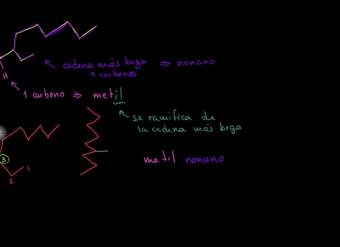 cadena más larga ⇒ nonano
9 carbonos
H
1 carbono ⇒ metil
se ramifica de
la cadena más larga
metil nonano
3
2 1